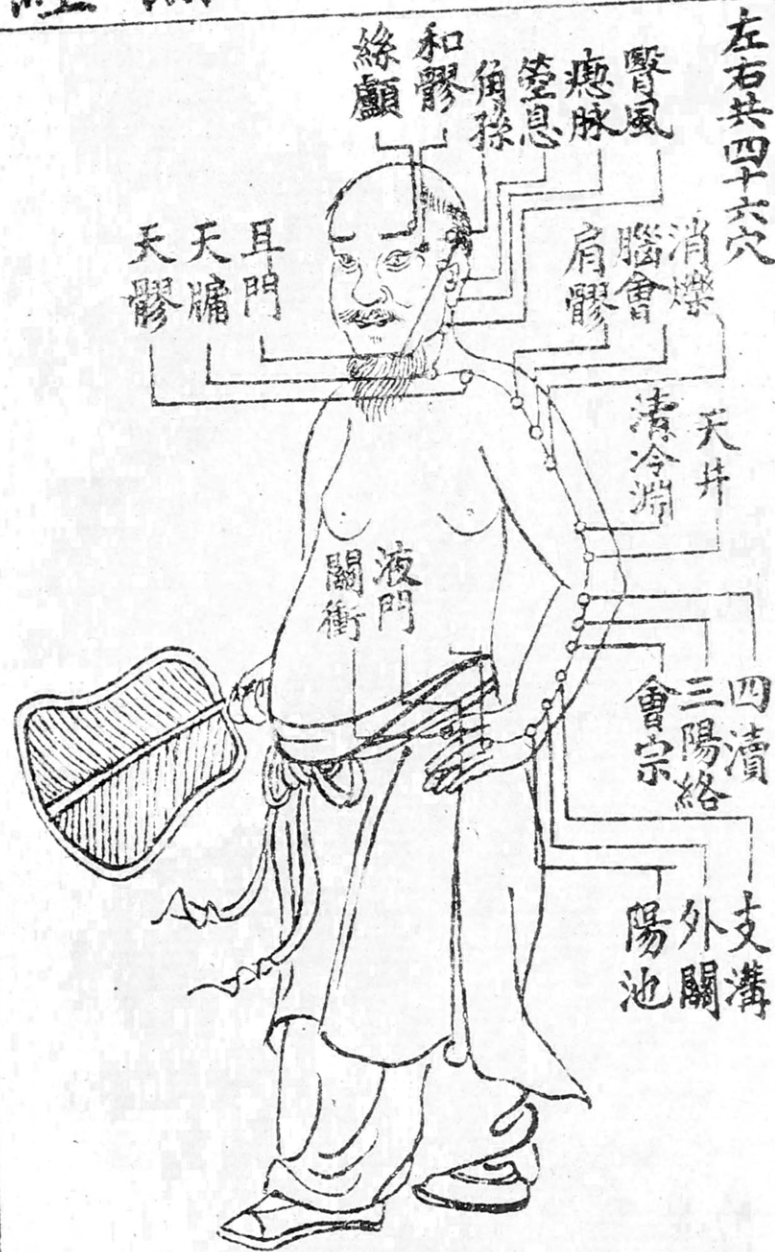 左右共四十六穴
翳風
瘈脉
顱息
角孫
和髎
絲竹
消爍
臑會
肩髎
耳門
天牖
天髎
天井
清冷淵
液門
關衝
四瀆
三陽絡
會宗
支溝
外關
陽池